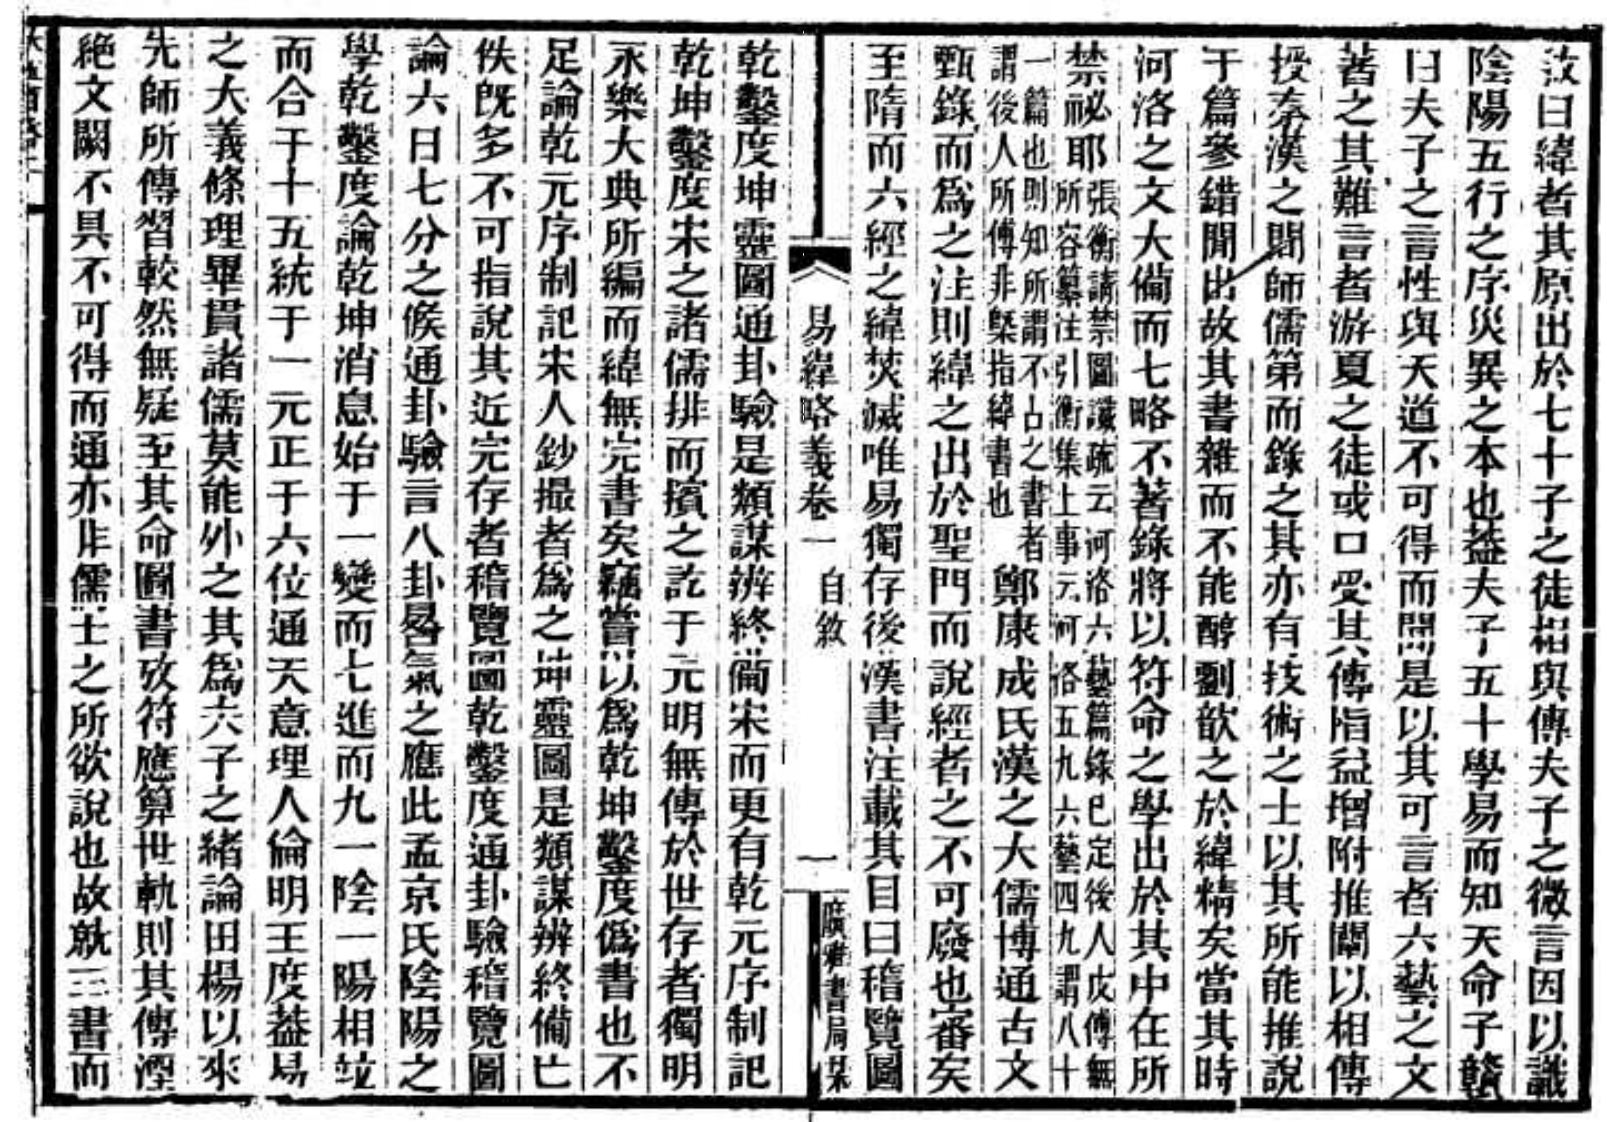 敘曰緯者其原出於七十子之徒相與傳夫子之微言因以識
陰陽五行之序災異之本也葢夫子五十學易而知天命子贛
曰夫子之言性與天道不可得而聞是以其可言者六藝之文
著之其難言者游夏之徒或口受其傳恉益增附推闡以相傳
授秦漢之閒師儒第而錄之其亦有技術之士以其所能推說
于篇參錯閒出故其書雜而不能醇劉歆之於緯精矣當其時
河洛之文大備而七略不著錄將以符命之學出於其中在所
禁祕耶
張衡請禁圖讖疏云河洛六藝篇錄已定後人皮傅無
所容篡注引衡集上事云河洛五九六藝四九謂八十
一篇也則知所謂不占之書者
謂後人所傅非槩指緯書也
鄭康成氏漢之大儒博通古文
甄錄而爲之注則緯之出於聖門而說經者之不可廢也審矣
至隋而六經之緯焚滅唯易獨存後漢書注載其目曰稽覽圖
易緯略義卷一 自敘 一 廣雅書局栞
乾鑿度坤靈圖通卦驗是類謀辨終備宋而更有乾元序制記
乾坤鑿度宋之諸儒排而擯之訖于元明無傳於世存者獨明
永樂大典所編而緯無完書矣竊嘗以爲乾坤鑿度僞書也不
足論乾元序制記宋人鈔撮者爲之坤靈圖是類謀辨終備亡
佚旣多不可指說其近完存者稽覽圖乾鑿度通卦驗稽覽圖
論六日七分之候通卦驗言八卦晷氣之應此孟京氏陰陽之
學乾鑿度論乾坤消息始于一變而七進而九一陰一陽相竝
而合于十五統于一元正于六位通天意理人倫明王度葢易
之大義條理畢貫諸儒莫能外之其爲六子之緒論田楊以來
先師所傳習較然無疑至其命圖書攷符應算世軌則其傳湮
絕文闕不具不可得而通亦非儒士之所欲說也故就三書而